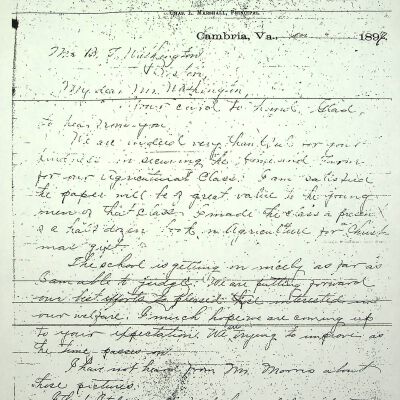 CHAS. L. MARSHALL, PRINCIPAL.
Cambria, Va., 1892
Mr. B. T. Washington
My dear Mr. Washington,
Your card to hand. Glad
to hear from you.
We are indeed very thankful for your
kindness in securing the Home and Farm
for our Agricultural Class. I am satisfied
the paper will be of great value to the young
men of the Class. I made the class a present
of a half dozen books on Agriculture for Christ-
mas gift.
The school is getting on nicely as far as
I am able to judge. We are putting forward
our best efforts to please those interested in
our welfare. I much hope we are coming up
to your expectation. We are trying to improve as
the time passes on.
I has not heard from Mr. Morris about
those pictures.